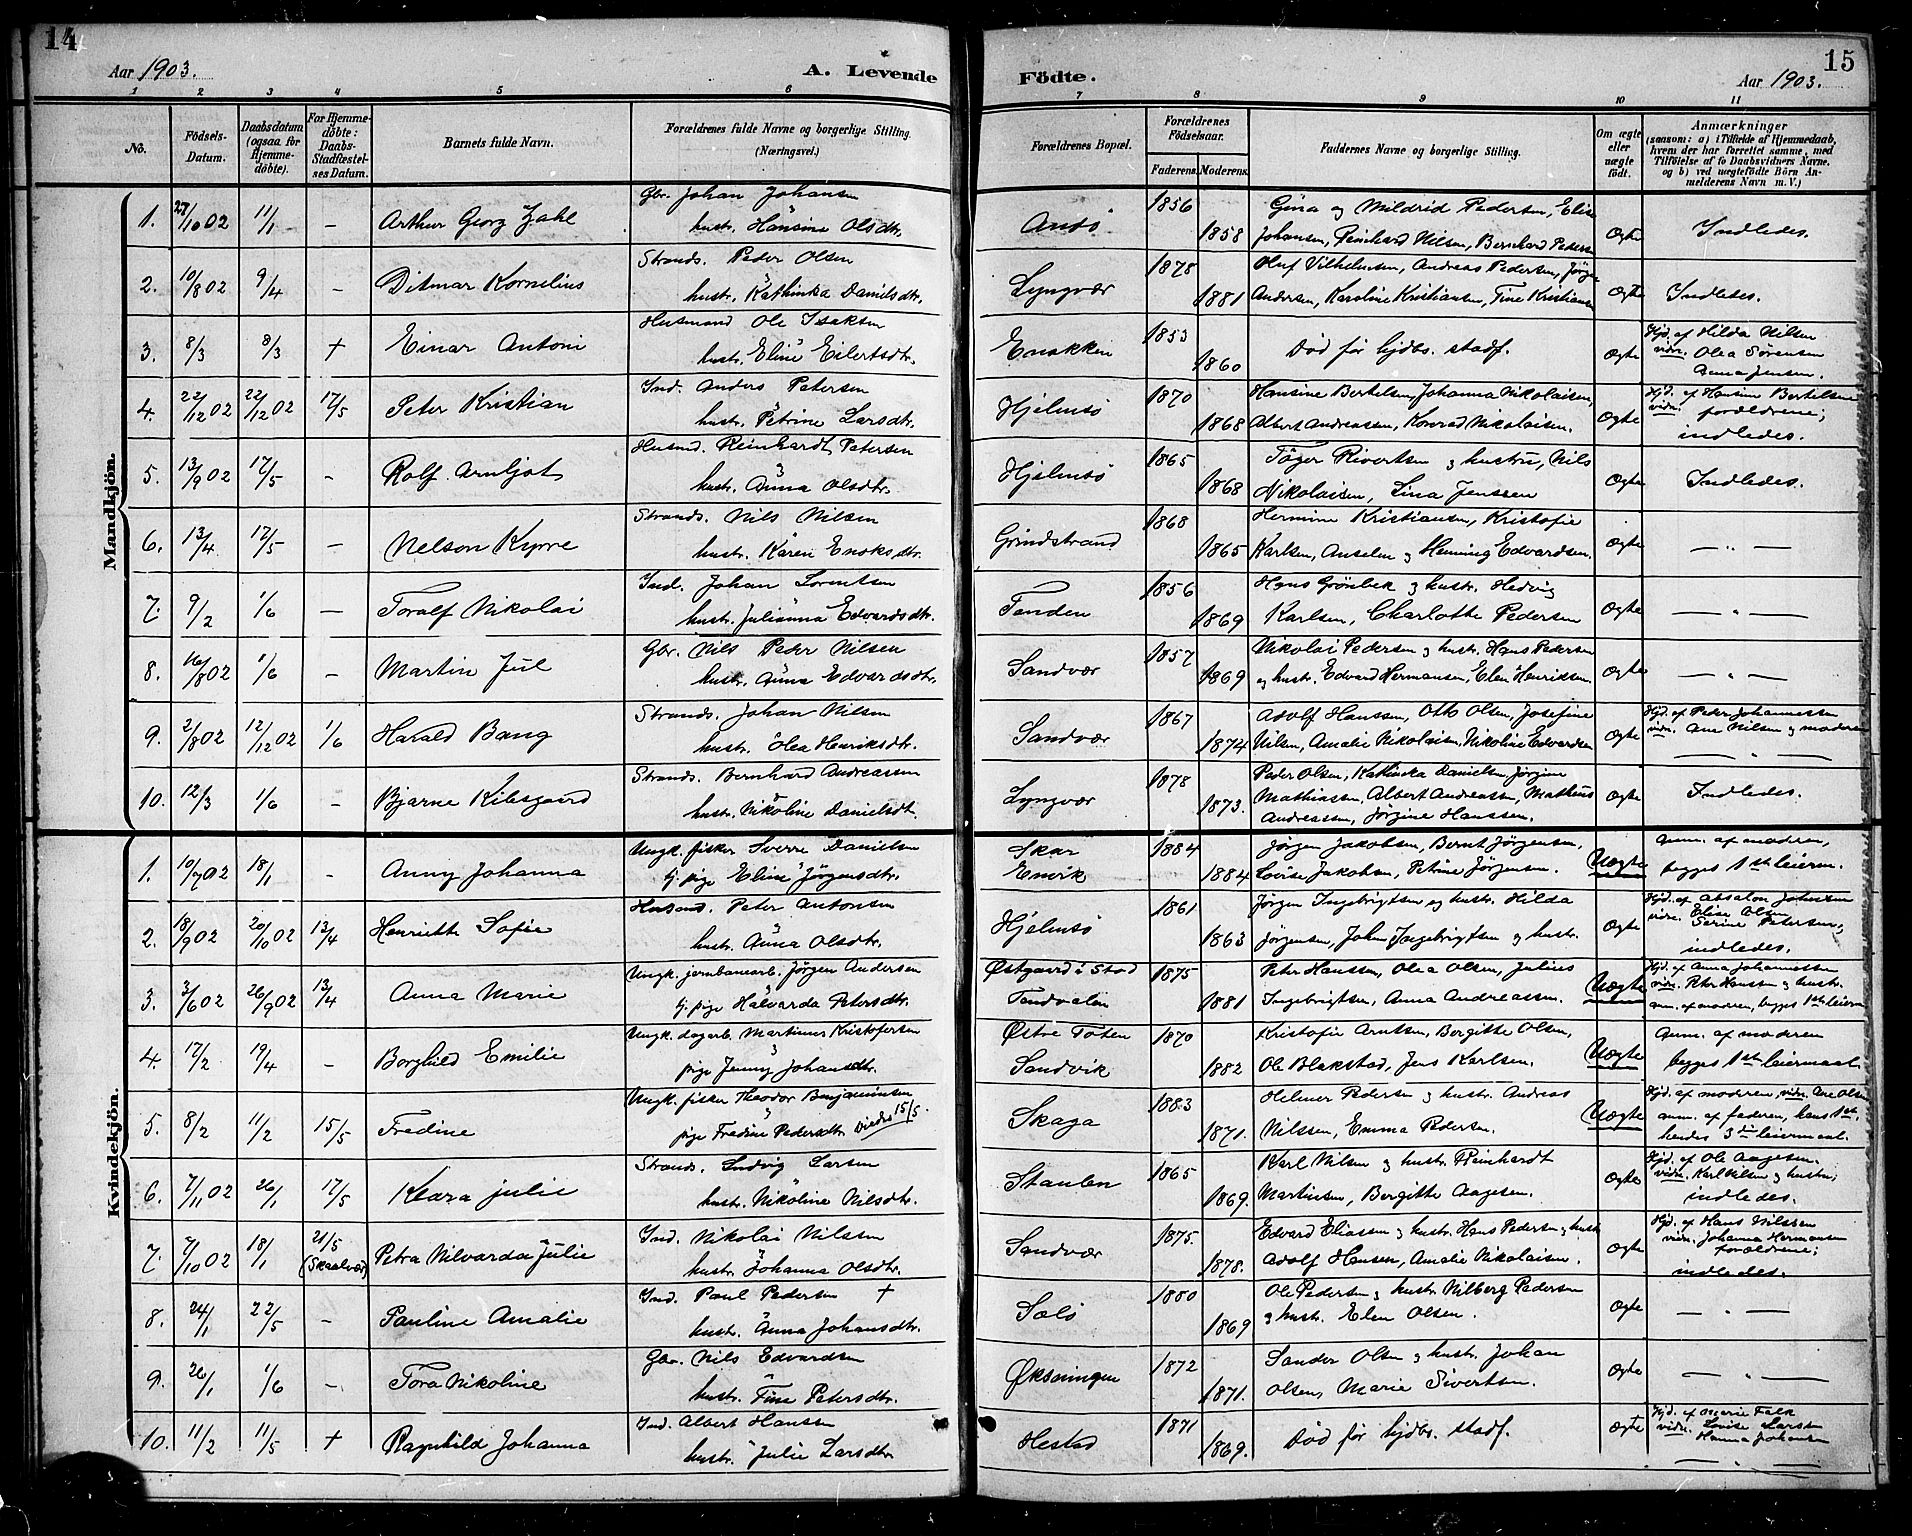 14
Aar 1903.
A. Levende Födte.
15
Aar 1903.
1 2 3 4 5 6 7 8 9 10 11
No.
Födsels-Datum.
Daabsdatum (ogsaa for Hjemmedöbte).
For Hjemmedöbte: Daabs-Stadfæstelses Datum.
Barnets fulde Navn.
Forældrenes fulde Navne og borgerlige Stilling. (Næringsvei.)
Forældrenes Bopæl.
Forældrenes Födselsaar.
Faderens. Moderens.
Faddernes Navne og borgerlige Stilling.
Om ægte eller uægte födt.
Anmærkninger
(saasom: a) i Tilfælde af Hjemmedaab, hvem der har forrettet samme, med Tilföielse af to Daabsvidners Navne, og b) ved uægtefödte Börn Anmelderens Navn m. V.)
Mandkjön.
1. 27/10 02 11/1 – Arthur Georg Zahl
Gbr. Johan Johansen
hustr. Hansine Olsdtr.
Andö 1856 1858
Gina og Mildrid Pedersen, Elise
Johansen, Reinhard Nilsen, Bernhard Pedersen
Ægte Indledes.
2. 10/8 02 9/4 – Ditmar Kornelius
Strands. Peder Olsen
hustr. Kathinka Danielsdtr.
Lyngvær 1878 1881
Oluf Vilhelmsen, Andreas Pedersen, Jörgen
Andersen, Karoline Kristiansen, Tine Kristiansen
Ægte Indledes.
3. 8/3 8/3 † Einar Antoni
Husmand Ole Isaksen
hustr. Eline Eilertsdtr.
1853 1860
Död før hjdbs. stadf.
Ægte
Hjd. af Hilda Nilsen
vidn. Olea Sørensen
Anna Jensen.
4. 22/12 02 22/12 02 17/5 Peter Kristian
Ind. Anders Petersen
hustr. Petrine Larsdtr.
Hjelmsö 1870 1868
Hansine Bertelsen, Johanna Nikolaisen,
Albert Andreassen, Konrad Nikolaisen.
Ægte
Hjd. af Hansine Bertelsen
vidn. forældrene;
indledes.
5. 13/9 02 17/5 – Rolf Arnljot
Husmd. Reinhardt Petersen
hustr. Anna Olsdtr.
Hjelmsö 1865 1868
Töger Sivertsen g hustru, Nils
Nikolaisen, Lina Jenssen
Ægte Indledes.
6. 13/4 17/5 – Nelson Kyrre
Strands. Nils Nilsen
hustr. Karen Enoksdtr.
Grindstrand 1868 1865
Hermine Kristiansen, Kristofer
Karlsen, Anselm g Henning Edvardsen.
Ægte — „ —
7. 9/2 1/6 – Toralf Nikolai
Ind. Johan Lorentsen
hustr. Julianna Edvardsdtr.
Tenden 1856 1869
Hans Grönbek g hustr. Hedvig
Karlsen, Charlotte Pedersen
Ægte — „ —
8. 16/8 02 1/6 – Martin Jul
Gbr. Nils Peder Nilsen
hustr. Anna Edvardsdtr.
Sandvær 1857 1869
Nikolai Pedersen g hustr. Hans Pedersen
g hustr. Edvard Hermansen, Elen Henriksen.
Ægte — „ —
9. 2/8 02 12/12 02 1/6 Harald Bang
Strands. Johan Nilsen
hustr. Olea Henriksdtr.
Sandvær 1867 1874
Adolf Hanssen, Otto Olsen, Josefine
Nilsen, Amalie Nikolaisen, Nikoline Edvardsen
Ægte
Hjd. af Peder Johannessen
vidn. Ane Nilsen g moderen
— „ —
10. 12/3 1/6 – Bjarne Kilsgaard
Strands. Bernhard Andreassen
hustr. Nikoline Danielsdtr.
Lyngvær 1878 1873.
Peder Olsen, Kathinka Danielsen, Jørgine
Mathiassen, Albert Andreassen, Mathias
Andreassen, Jørgine Hanssen.
Ægte Indledes.
Kvindekjön.
1. 10/7 02 18/1 – Anny Johanna
Ungk. fisker Sverre Danielsen
tj. pige Eline Jörgensdtr.
Skar
Envik
1884 1884
Jørgen Jakobsen, Bernt Jørgensen,
Lovise Jakobsen, Petrine Jørgensen.
Uægte
Anm. af moderen,
begges 1ste leierm.
2. 18/9 02 20/10 02 13/4 Henriette Sofie
Husmd. Peter Antonsen
hustr. Anna Olsdtr.
Hjelmsö 1861 1863
Jørgen Ingebrigtsen og hustr. Hilda
Jørgensen, Johan Ingebrigtsen g hustr.
Ægte
Hjd. af Absalon Johnsen
vidn. Elise Olsen
Serine Petersen;
indledes.
3. 3/6 02 26/9 02 13/4 Anna Marie
Ungk. jernbanearb. Jørgen Andersen
tj. pige Halvarda Petersdtr.
Østgaard i Stod
Tendvalen
1875 1881
Peter Hanssen, Olea Olsen, Julius
Ingebrigtsen, Anna Andreassen.
Uægte
Hjd. af Anna Johannessen
vidn. Peter Hanssen g hustr.
anm. af moderen, begges 1ste leierm
4. 17/2 19/4 – Borghild Emilie
Ungk. dagarb. Martinus Kristofersen
pige Jenny Johansdtr.
Østre Toten
Sandvik
1870 1882
Kristofer Arntsen, Bergitte Olsen,
Ole Blakstad, Jens Karlsen.
Uægte
Anm. af moderen
begges 1ste leiermaal.
5. 8/2 11/2 15/5 Fredine
Ungk. fisker Theodor Benjaminsen
pige Fredine Pedersdtr. Viedes 15/5.
Skaga 1883 1871.
Helmer Pedersen g hustr. Andreas
Nilssen, Emma Pedersen.
Uægte
Hjd. af moderen, vidn. Ane Olsen
anm. af faderen, hans 1ste
hendes 3die leiermaal.
6. 7/11 02 26/1 17/5 Klara Julie
Strands. Ludvig Larsen
hustr. Nikoline Nilsdtr.
Staulen 1865 1869.
Karl Nilsen g hustr. Reinhardt
Martinsen, Bergitte Aagesen.
Ægte
Hjd. af Ole Aagesen.
vidn. Karl Nilsen g hustru;
indledes.
7. 7/10 02 18/1 21/5 (Skaalvær) Petra Nilvarda Julie
Ind. Nikolai Nilssen
hustr. Johanna Olsdtr.
Sandvær 1875. 1878.
Edvard Eliassen g hustr. Hans Pedersen g hustr
Adolf Hansen, Amalie Nikolaisen.
Ægte
Hjd. af Hans Nilssen
vidn. Johanna Hermansen
forældrene;
indledes.
8. 24/1 22/5 – Pauline Amalie
Ind. Paul Pedersen †
hustr. Anna Johansdtr.
Solö 1880 1869
Ole Pedersen g hustr. Nilberg Pedersen
g hustr. Elen Olsen.
Ægte — „ —
9. 26/1 1/6 – Tora Nikoline
Gbr. Nils Edvardsen
hustr. Tine Petersdtr.
Øksningen 1872 1871.
Sander Olsen g hustr. Johan
Olsen, Marie Sivertsen.
Ægte — „ —
10. 11/2 11/5 † Ragnhild Johanna
Ind. Albert Hanssen
hustr. Julie Larsdtr.
Hestad 1871 1869.
Död før hjdbs. stadf.
Ægte
Hjd. af Marie Falk
vidn. Lovise Larsen
Hanna Johansen
— „ —